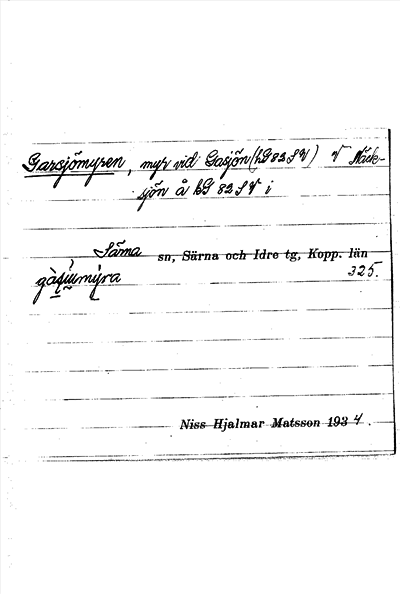 Garsjömyren, myr vid Gasjön (bG 82 S V) V Näck-
sjön å bG 82 S V i
Särna sn, Särna och Idre tg, Kopp. län
325.
Niss Hjalmar Matsson 1934.